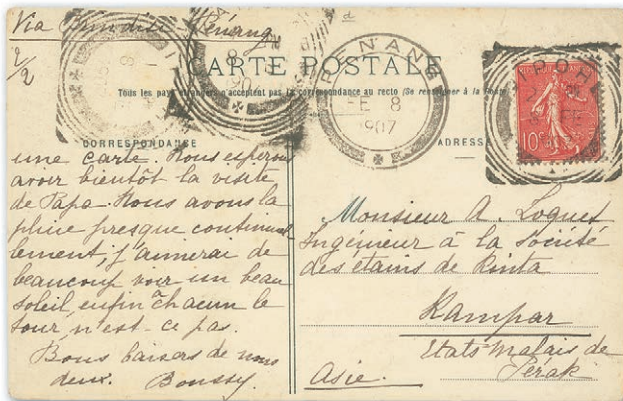 Via Brindisi Penang
2/2
CARTE POSTALE
Tous les pays étrangers n'acceptent pas la correspondance au recto (Se renseigner à la Poste
CORRESPONDANCE
une carte. Nous espérons
avoir bientôt la visite
de Papa. Nous avons la
pluie presque continuel
lement, j'aimerai de
beaucoup voir un beau
soleil, enfin à chacun le
tour n'est-ce pas.
Bons baisers de nous
deux. Boussy.
PENANG
FE 8
1907
ADRESSE
REPUBLIQUE FRANCAISE
10c
Monsieur A. Loquet
Ingénieur à la Société
des étains de Kinta
Kampar
Etats Malais de
Perak
Asie.